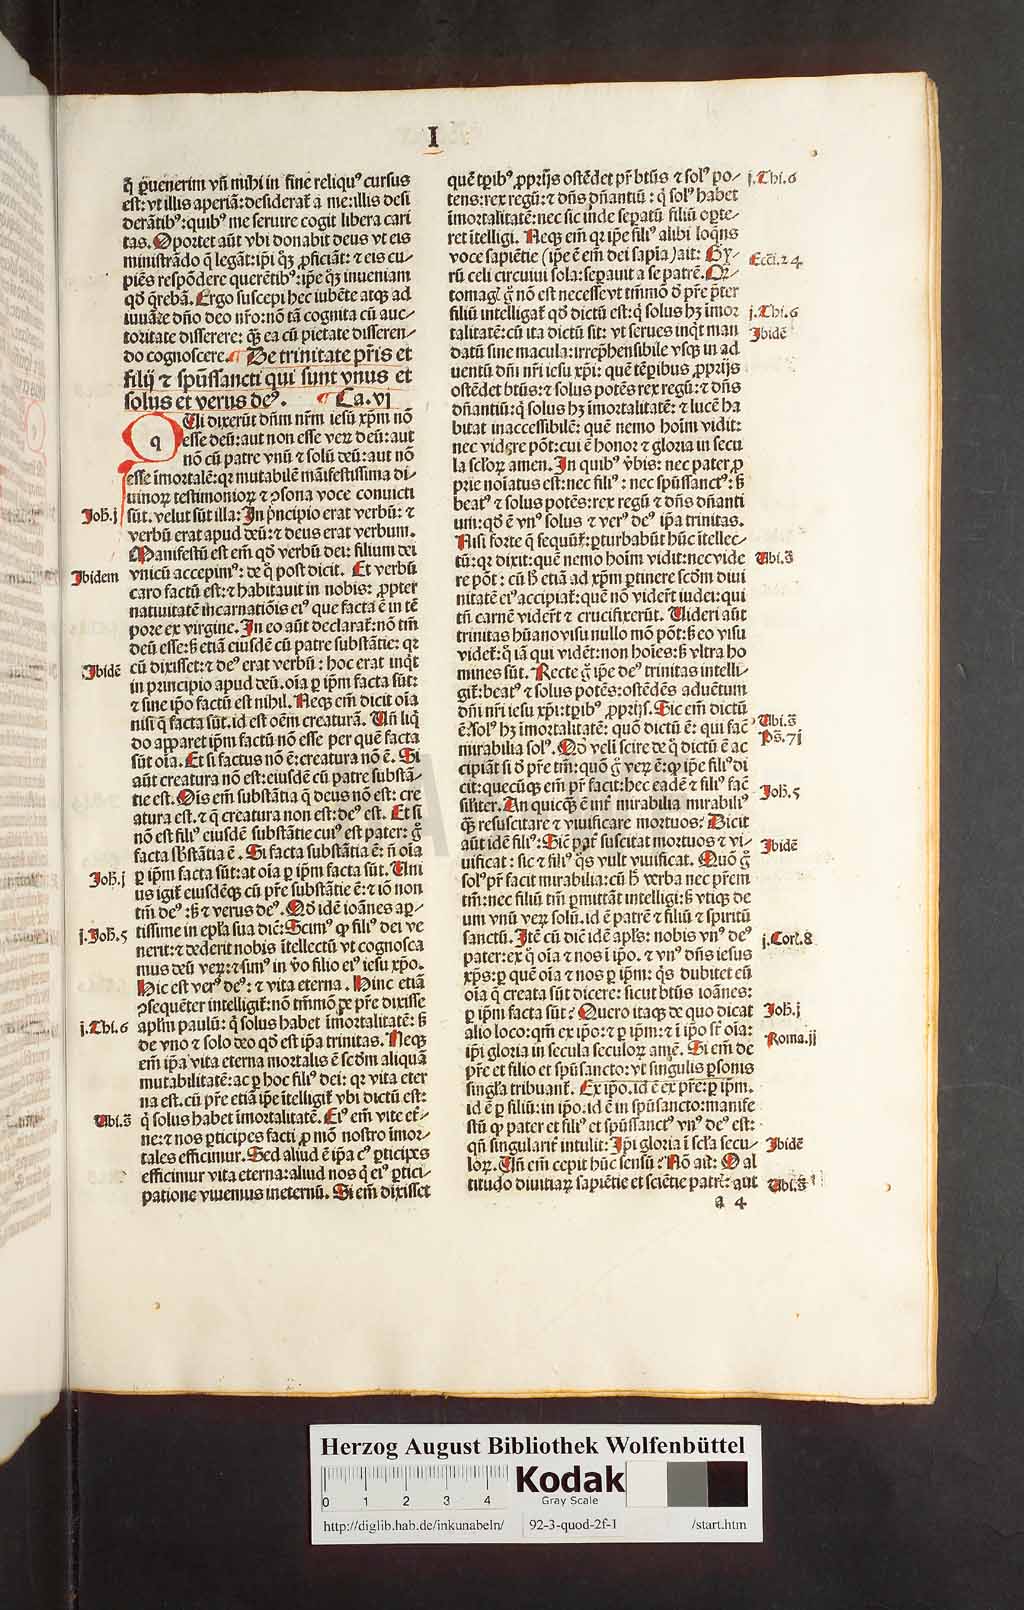 I
q̄ ꝑuenerim vñ mihi in fine reliquꝰ cursus
est: vt illis aperiā: desiderat᷑ a me: illis desi
derātibꝰ: quibꝰ me seruire cogit libera cari
tas. Oportet aūt vbi donabit deus vt eis
ministrādo q̄ legāt: ip̄i qꝫ ꝓficiāt: ⁊ eis cu⸗
piēs respōdere querētibꝰ: ipe qꝫ inueniam
qd̄ q̄rebā. Ergo suscepi hec iubēte atqꝫ ad
iuuāre dn̄o deo nr̄o: nō tā cognita cū auc⸗
toritate disserere: qꝫ ea cū pietate disseren⸗
do cognoscere. ¶ De trinitate pr̄is et
filij ⁊ spūssancti qui sunt vnus et
solus et verus deꝰ. ¶ Ca. vj
QUi dixerūt dn̄m nr̄m iesū xp̄m nō
esse deū: aut non esse veꝝ deū: aut
nō cū patre vnū ⁊ solū deū: aut nō
esse īmortalē: qꝛ mutabilē māifestissima di⸗
uinoꝝ testimonioꝝ ⁊ ꝯsona voce conuicti
sūt. velut sūt illa: In pⁱncipio erat verbū: ⁊
verbū erat apud deū: ⁊ deus erat verbum.
Manifestū est em̄ qd̄ verbū dei: filium dei
vnicū accepimꝰ: de q̄ post dicit. Et verbū
caro factū est: ⁊ habitauit in nobis: ꝓpter
natiuitatē incarnatiōis eiꝰ que facta ē in tē
pore ex virgine. In eo aūt declarat᷑: nō tm̄
deū esse: sꝫ etiā eiusdē cū patre substātie: qꝛ
cū dixisset: ⁊ deꝰ erat verbū: hoc erat inq̄t
in principio apud deū. oīa ꝑ ip̄m facta sūt:
⁊ sine ip̄o factū est nihil. Neqꝫ em̄ dicit oīa
nisi q̄ facta sūt. id est oēm creaturā. Vn̄ liq̄
do apparet ip̄m factū nō esse per quē facta
sūt oīa. Et si factus nō ē: creatura nō ē. Si
aūt creatura nō est: eiusdē cū patre substā⸗
tie est. Oīs em̄ substātia q̄ deus nō est: cre
atura est. ⁊ q̄ creatura non est: deꝰ est. Et si
nō est filiꝰ eiusdē substātie cuiꝰ est pater: gͦ
facta sb̄stātia ē. Si facta substātia ē: n̄ oīa
ꝑ ip̄m facta sūt: at oīa ꝑ ip̄m facta sūt. Uni
us igit᷑ eiusdēqꝫ cū pr̄e substātie ē: ⁊ iō non
tm̄ deꝰ: sꝫ ⁊ verus deꝰ. Qd̄ idē ioānes aꝑ⸗
tissime in epl̄a sua dic̄: Scimꝰ qꝫ filiꝰ dei ve
nerit: ⁊ dederit nobis ītellectū vt cognosca
mus deū veꝝ: ⁊ simꝰ in v̄o filio eiꝰ iesu xp̄o.
Hic est verꝰ deꝰ: ⁊ vita eterna. Hinc etiā
ꝯsequēter intelligit᷑: nō tm̄mō ꝓ pr̄e dixisse
apl̄m paulū: q̄ solus habet īmortalitatē: sꝫ
de vno ⁊ solo deo qd̄ est ip̄a trinitas. Neqꝫ
em̄ ip̄a vita eterna mortalis ē scd̄m aliquā
mutabilitatē: ac ꝑ hoc filiꝰ dei: qꝛ vita eter
na est. cū pr̄e etiā ip̄e ītelligit᷑ vbi dictū est:
q̄ solus habet īmortalitatē. Eiꝰ em̄ vite et̄⸗
ne: ⁊ nos ꝑticipes facti ꝓ mō nostro īmor⸗
tales efficimur. Sed aliud ē ip̄a cꝰ ꝑticipes
efficimur vita eterna: aliud nos q̄ eiꝰ ꝑtici⸗
patione viuemus ineternū. Si em̄ dixisset
Joh. j
Ibidem
Ibidē
Joh. j
j. Joh. 5
j. Thi. 6
Vbi. s̄
quē tꝑibꝰ ꝓprijs ostēdet pr̄ btūs ⁊ solꝰ po⸗
tens: rex regū: ⁊ dn̄s dn̄antiū: q̄ solꝰ habet
īmortalitatē: nec sic inde seꝑatū filiū oꝑte⸗
ret ītelligi. Neqꝫ em̄ qꝛ ip̄e filiꝰ alibi loq̄ns
voce sapiētie (ip̄e ē em̄ dei sapia) ait: Gy⸗
rū celi circuiui sola: seꝑauit a se patrē.
tomagꝭ gͦ nō est necesse vt tm̄mō d̄ pr̄e p̄ter
filiū intelligat᷑ qd̄ dictū est: q̄ solus hꝫ īmor
talitatē: cū ita dictū sit: vt serues inq̄t man
datū sine macula: irrep̄hensibile vsqꝫ in ad
uentū dn̄i nr̄i iesu xp̄i: quē tēꝑibus ꝓprijs
ostēdet btūs: ⁊ solus potēs rex regū: ⁊ dn̄s
dn̄antiū: q̄ solus hꝫ īmortalitatē: ⁊ lucē ha
bitat inaccessibilē: quē nemo hoīm vidit:
nec videre pōt: cui ē honor ⁊ gloria in secu
la scl̄oꝝ amen. In quibꝰ v̄bis: nec pater ꝓ
prie noīatus est: nec filiꝰ: nec spūssanctꝰ: sꝫ
beatꝰ ⁊ solus potēs: rex regū ⁊ dn̄s dn̄anti
um: qd̄ ē vnꝰ solus ⁊ verꝰ deꝰ ip̄a trinitas.
Nisi forte q̄ sequūt᷑: ꝑturbabūt hūc ītellec⸗
tū: qꝛ dixit: quē nemo hoīm vidit: nec vide
re pōt: cū h̄ etiā ad xp̄m ꝑtinere scd̄m diui
nitatē eiꝰ accipiat᷑: quē nō vider̄t iudei: qui
tn̄ carnē vider̄t ⁊ crucifixerūt. Uideri aūt
trinitas hūano visu nullo mō pōt: sꝫ eo visu
videt᷑: q̄ iā qui vidēt: non hoīes: sꝫ vltra ho
mines sūt. Recte gͦ ip̄e deꝰ trinitas intelli⸗
git᷑: beatꝰ ⁊ solus potēs: ostēdēs aduētum
dn̄i nr̄i iesu xp̄i: tꝑibꝰ ꝓprijs. Sic em̄ dictū
ē: solꝰ hꝫ īmortalitatē: quō dictū ē: qui fac̄
mirabilia solꝰ. Qd̄ velī scire de q̄ dictū ē ac
cipiāt si d̄ pr̄e tm̄: quō gͦ veꝝ ē: qꝫ ip̄e filiꝰ di
cit: quecūqꝫ em̄ pr̄ facit: hec eadē ⁊ filiꝰ fac̄
sīliter. An quicqꝫ ē int̄ mirabilia mirabiliꝰ
qꝫ resuscitare ⁊ viuificare mortuos? Dicit
aūt idē filiꝰ: Sic̄ pat̄ suscitat mortuos ⁊ vi⸗
uificat: sic ⁊ filiꝰ q̄s vult viuificat. Quō gͦ
solꝰ pr̄ facit mirabilia: cū h̄ verba nec pr̄em
tm̄: nec filiū tm̄ ꝑmittāt intelligi: sꝫ vtiqꝫ de
um vnū veꝝ solū. id ē patrē ⁊ filiū ⁊ spiritū
sanctū. Itē cū dic̄ idē apl̄s: nobis vnꝰ deꝰ
pater: ex q̄ oīa ⁊ nos ī ip̄o. ⁊ vnꝰ dn̄s iesus
xp̄s: ꝑ quē oīa ⁊ nos ꝑ ip̄m: q̄s dubitet eū
oīa q̄ creata sūt dicere: sicut btūs ioānes:
ꝑ ip̄m facta sūt? Quero itaqꝫ de quo dicat
alio loco: qm̄ ex ip̄o: ⁊ ꝑ ip̄m: ⁊ ī ip̄o sr̄ oīa:
ip̄i gloria in secula seculoꝝ amē. Si em̄ de
pr̄e et filio et spū sancto: vt singulis ꝑsonis
singl̄a tribuant᷑. Ex ip̄o. id ē ex pr̄e: ꝑ ip̄m.
id ē ꝑ filiū: in ip̄o: id ē in spūsancto: manife
stū qꝫ pater et filiꝰ et spūssanctꝰ vnꝰ deꝰ est:
qn̄ singularit᷑ intulit: Ip̄i gloria ī scl̄a secu⸗
loꝝ. Un̄ em̄ cepit hūc sensū? Nō ait: O al
titudo diuitiaꝝ sapiētie et sciētie patr̄: aut
j. Thi. 6
Ecci. 24
j. Thi. 6
Ibidē
Vbi. s̄
Vbi. s̄
Ps̄. 7j
Joh. 5
Ibidē
j. Corī. 8
Joh. j
Roma. ij
Ibidē
Vbi. s̄
a 4
Herzog August Bibliothek Wolfenbüttel
0 1 2 3 4
Kodak
Gray Scale
http://diglib.hab.de/inkunabeln/ 92-3-quod-2f-1 /start.htm